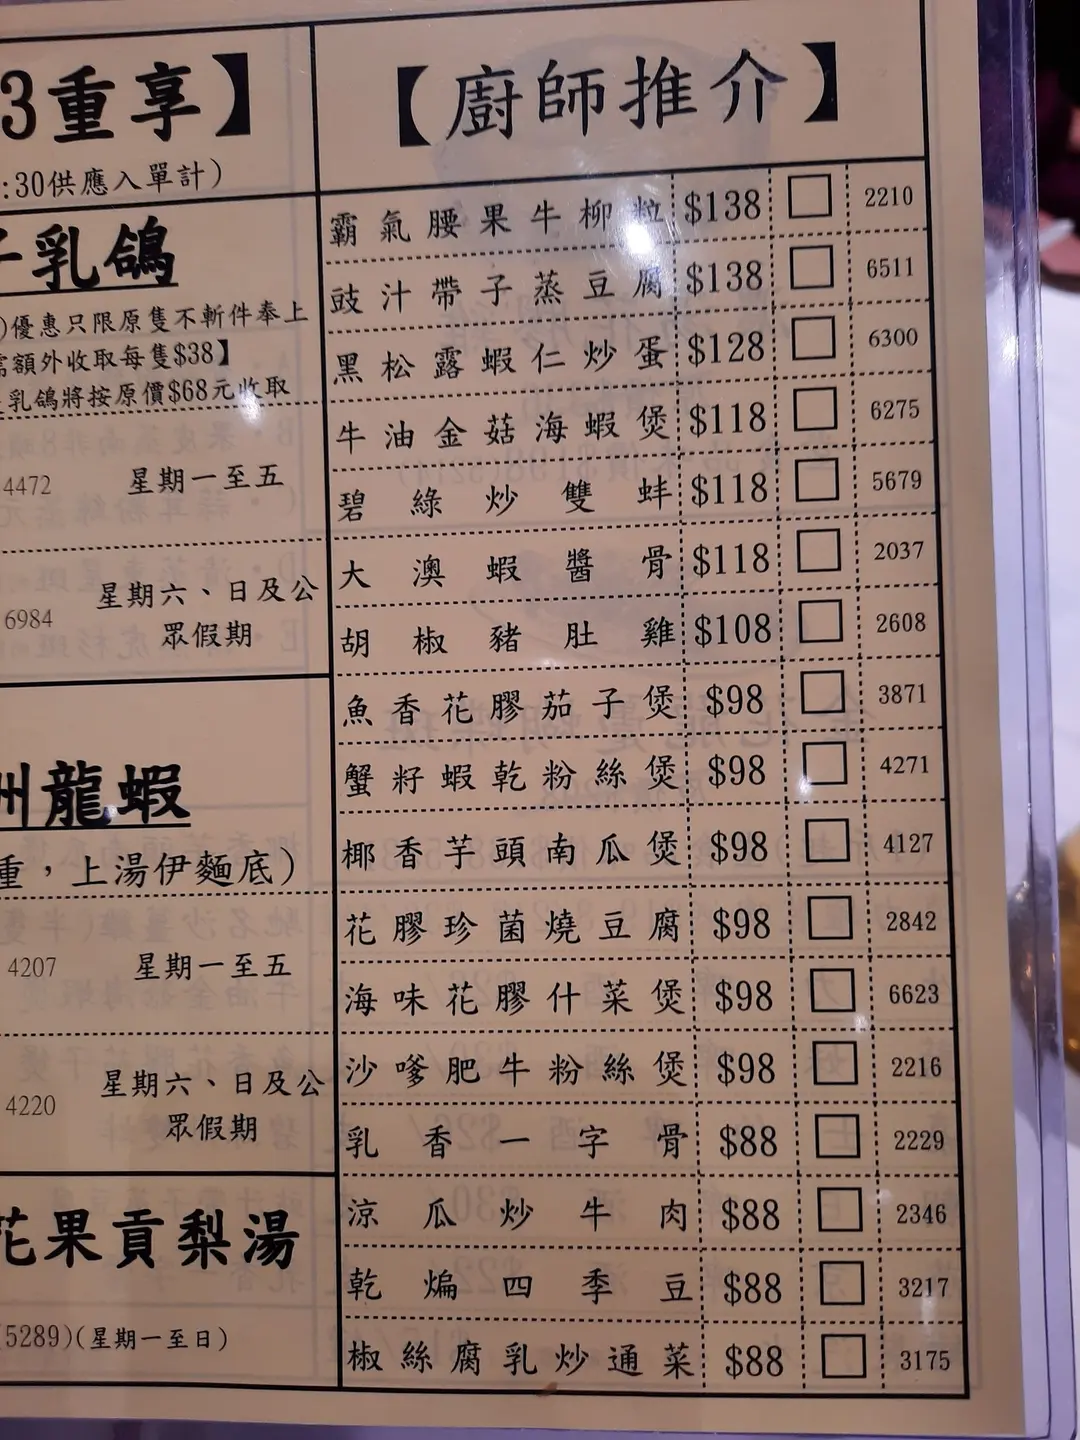 3重享】
:30供應入單計)
乳鴿
)優惠只限原隻不斬件奉上
額外收取每隻$38】
乳鴿將按原價$68元收取
4472 星期一至五
6984 星期六、日及公
眾假期
州龍蝦
重，上湯伊麵底)
4207 星期一至五
4220 星期六、日及公
眾假期
花果貢梨湯
5289)(星期一至日)
【廚師推介】
霸氣腰果牛柳粒 $138 □ 2210
豉汁帶子蒸豆腐 $138 □ 6511
黑松露蝦仁炒蛋 $128 □ 6300
牛油金菇海蝦煲 $118 □ 6275
碧綠炒雙蚌 $118 □ 5679
大澳蝦醬骨 $118 □ 2037
胡椒豬肚雞 $108 □ 2608
魚香花膠茄子煲 $98 □ 3871
蟹籽蝦乾粉絲煲 $98 □ 4271
椰香芋頭南瓜煲 $98 □ 4127
花膠珍菌燒豆腐 $98 □ 2842
海味花膠什菜煲 $98 □ 6623
沙嗲肥牛粉絲煲 $98 □ 2216
乳香一字骨 $88 □ 2229
涼瓜炒牛肉 $88 □ 2346
乾煸四季豆 $88 □ 3217
椒絲腐乳炒通菜 $88 □ 3175